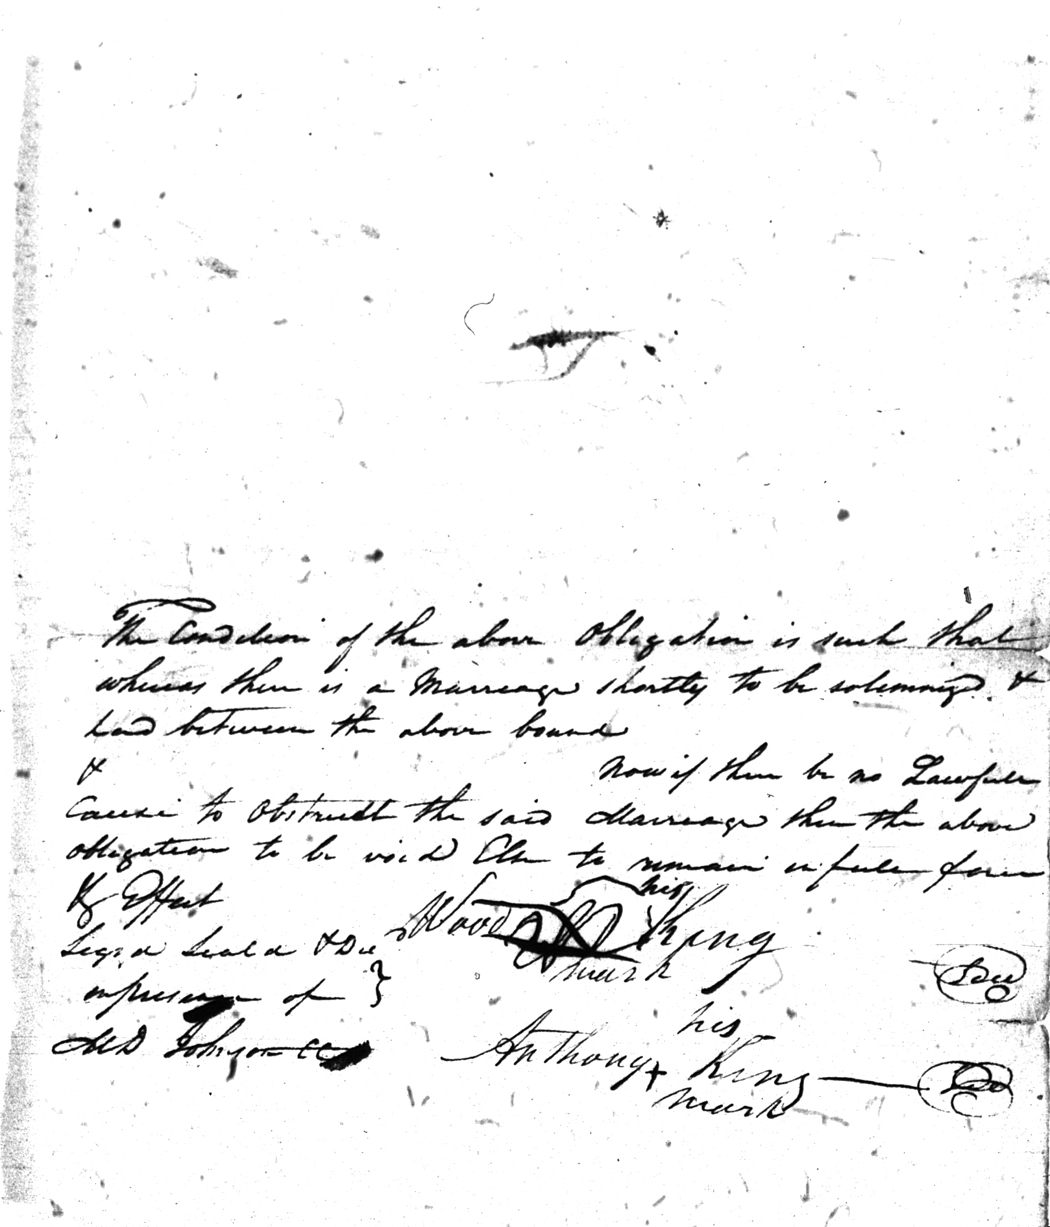 The Condition of the above Obligation is such that
whereas there is a Marreage shortly to be solemnized &
had between the above bound
&
Now if there be no Lawfull
Cause to Obstruct the said Marreage then the above
Obligation to be void Else to remain in full force
& Effect
Sign'd Seal'd & De
in presence of
his
Wood King
mark
Seal
MD Johnson CC
his
Anthony + King
mark
Seal